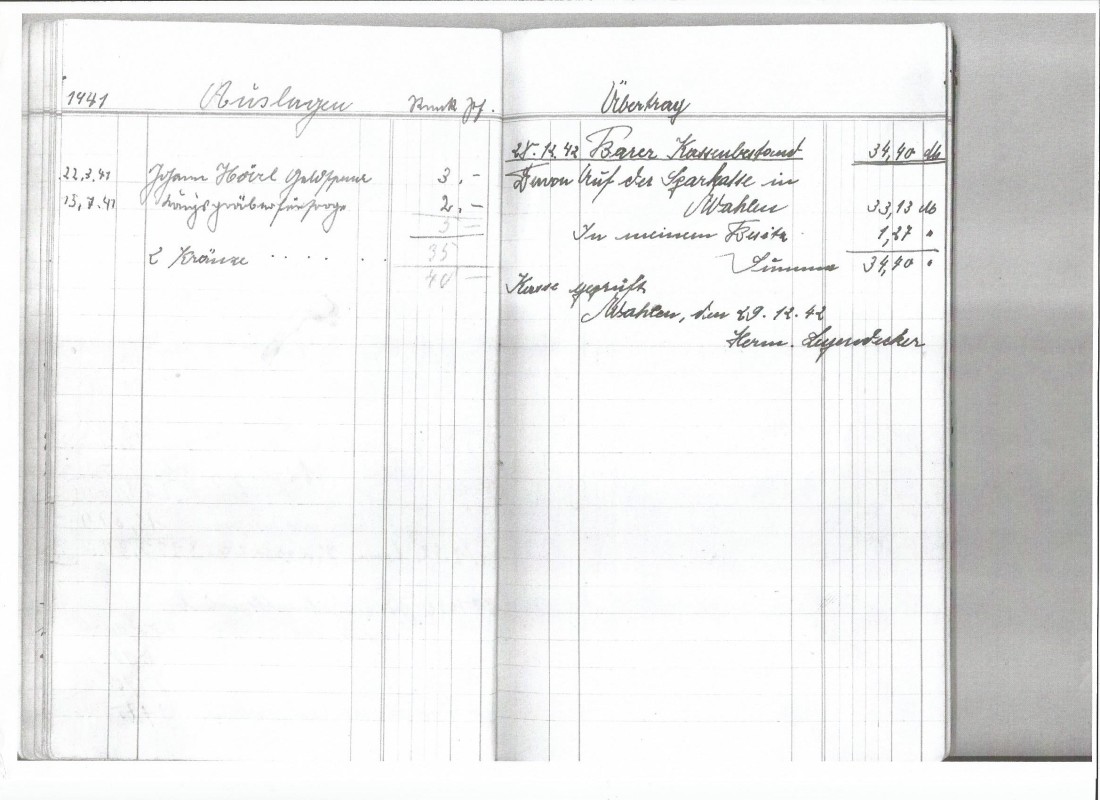 1941 Auslagen Mark Pf.
22.3.41 Johann Hoirl Geldspende 3.-
15.7.41 Kriegsgräberfürsorge 2.-
5 -
2 Kränze . . . . . . 35
40 -
Übertrag
28.12.42 Barer Kassenbestand 34,40 M
Davon Auf der Sparkasse in
Wahlen 33,13 M
In meinem Besitz 1,27 "
Summa 34,40 "
Kasse geprüft
Wahlen, den 29.12.42
Herm. Leyendecker